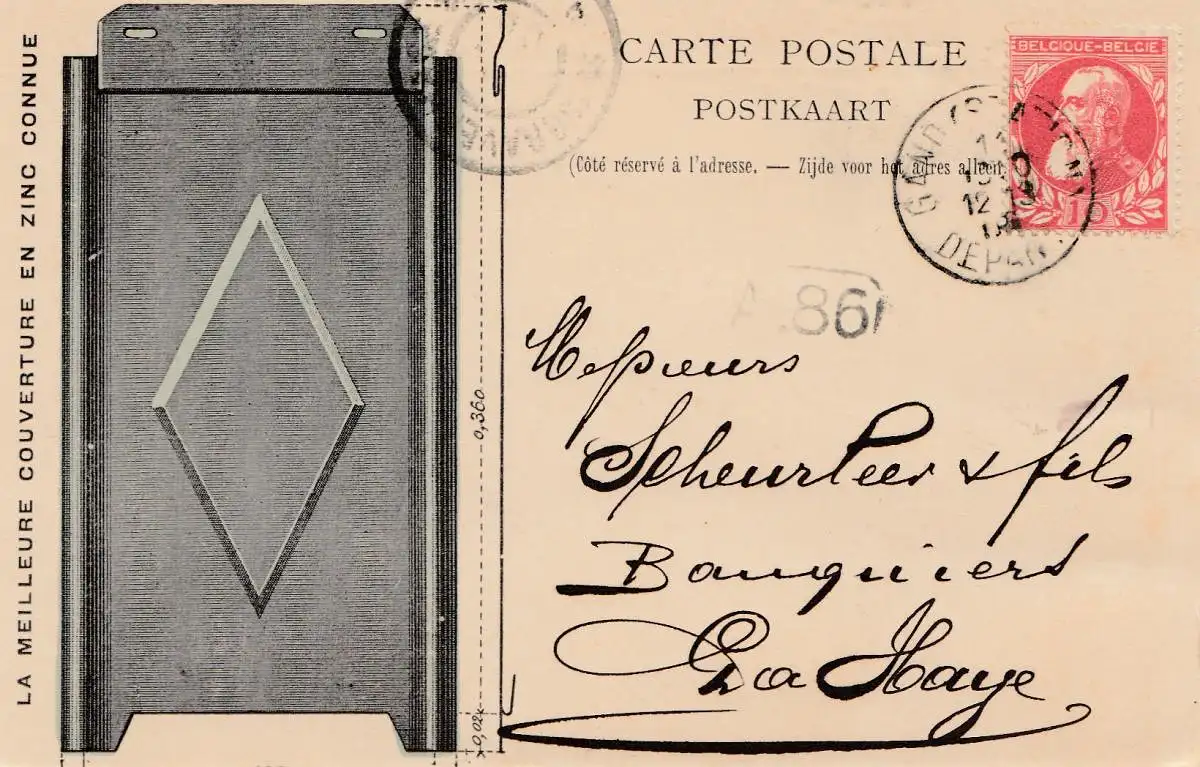 LA MEILLEURE COUVERTURE EN ZINC CONNUE
CARTE POSTALE
POSTKAART
(Côté réservé à l'adresse. — Zijde voor het adres alleen
BELGIQUE-BELGIË
10
GAND
12
DEPART
86
Messieurs
Scheurleer & fils
Banquiers
La Haye
0,360
0,02